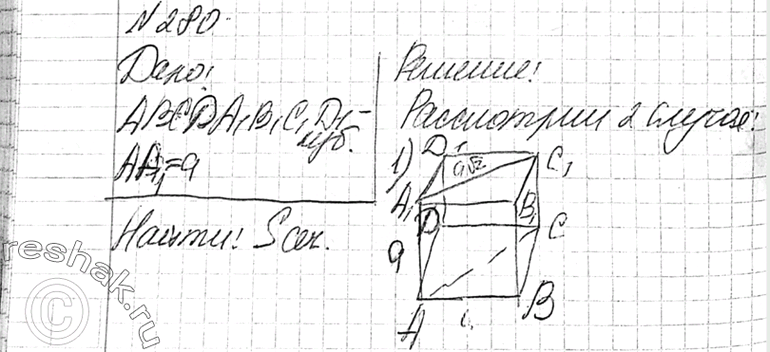 N 280.
Дано:
ABCDA₁B₁C₁D₁ -
куб.
AA₁=a
Найти: Sсеч.
Решение:
Рассмотрим 2 случая:
1) D₁
a√2
C₁
A₁
B₁
D
C
a
A
B
reshak.ru
©